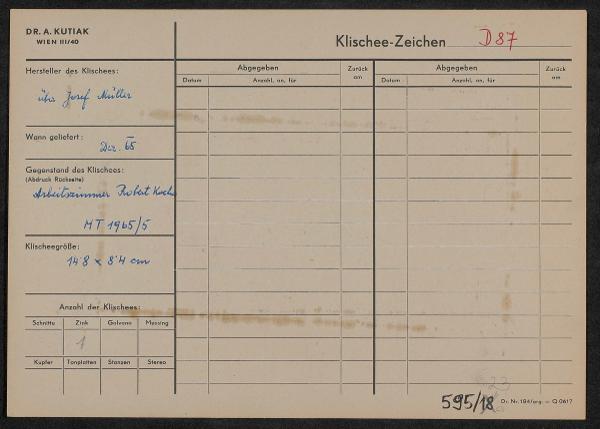 DR. A. KUTIAK
WIEN III/40
Klischee-Zeichen D 87
Hersteller des Klischees:
über Josef Müller
Wann geliefert:
Dez. 65
Gegenstand des Klischees:
(Abdruck Rückseite)
Arbeitszimmer Robert Koch
MT 1965/5
Klischeegröße:
14'8 x 8'4 cm
Anzahl der Klischees:
Schnitte Zink Galvano Messing
1
Kupfer Tonplatten Stanzen Stereo
Abgegeben Zurück am
Datum Anzahl, an, für
Abgegeben Zurück am
Datum Anzahl, an, für
23
595/18 Dr. Nr. 184/org. — Q 0617